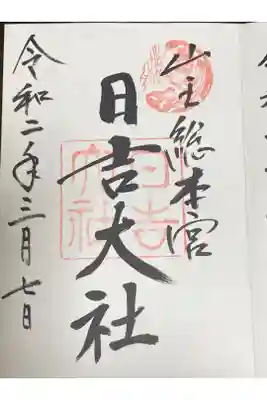 山王総本宮
日吉大社
令和二年三月七日